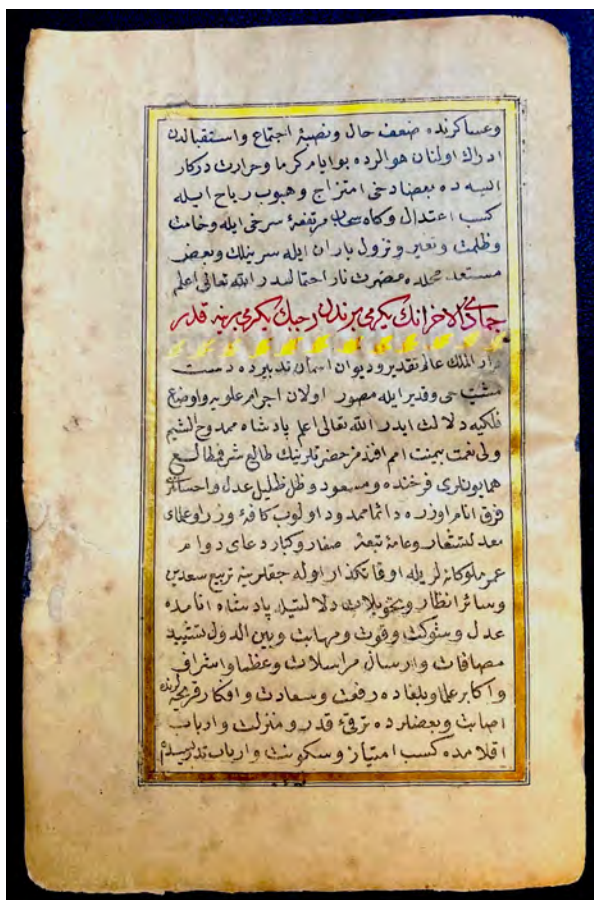 وعساكرنده ضعف حال ونصبهٔ اجتماع واستقبالدن
ادراك اولنان هوالرده بوايام كرما وحرارت دركار
ايسه ده بعضا دخى امتزاج وهبوب رياح ايله
كسب اعتدال وكاه سحاب مرتفعهٔ سرخى ايله وخامت
وظلمت وتغير ونزول باران ايله سرينلك وبعض
مستعد محللرده مضرت نار احتماليدر الله تعالى اعلم
جمادى الاخرانك يكرمى برندن رجبك يكرمى برينه قدر
دار الملك عالم تقدير وديوان اسمان تدبيرده دست
مشيت حى وقدير ايله مصور اولان اجرام علويه واوضاع
فلكيه دلالت ايدر الله تعالى اعلم پادشاه ممدوح الشيم
ولى نعمت بيمنت افندمز حضرتلرينك طالع شرف
همايونلرى فرخنده ومسعود وظل ظليل عدل واحسانلرى
فرق انام اوزره دائما ممدود اولوب كافهٔ وزرا وعلماى
معدلتشعار وعامهٔ تبعهٔ صغار وكبار دعاى دوام
عمر ملوكانه لريله اوقاتكذار اوله جقلرينه تربيع سعدين
وسائر انظار وتحويلات دلالتيله پادشاه انامده
عدل وشوكت وقوت ومهابت وبين الدول تشييد
مصافات وارسال مراسلات وعظما واشراف
واكابر علما وبلغاده رفعت وسعادت وافكار قريحه لرنده
اصابت وبعضلرده ترقىء قدر ومنزلت وارباب
اقلامده كسب امتياز وسكونت وارباب